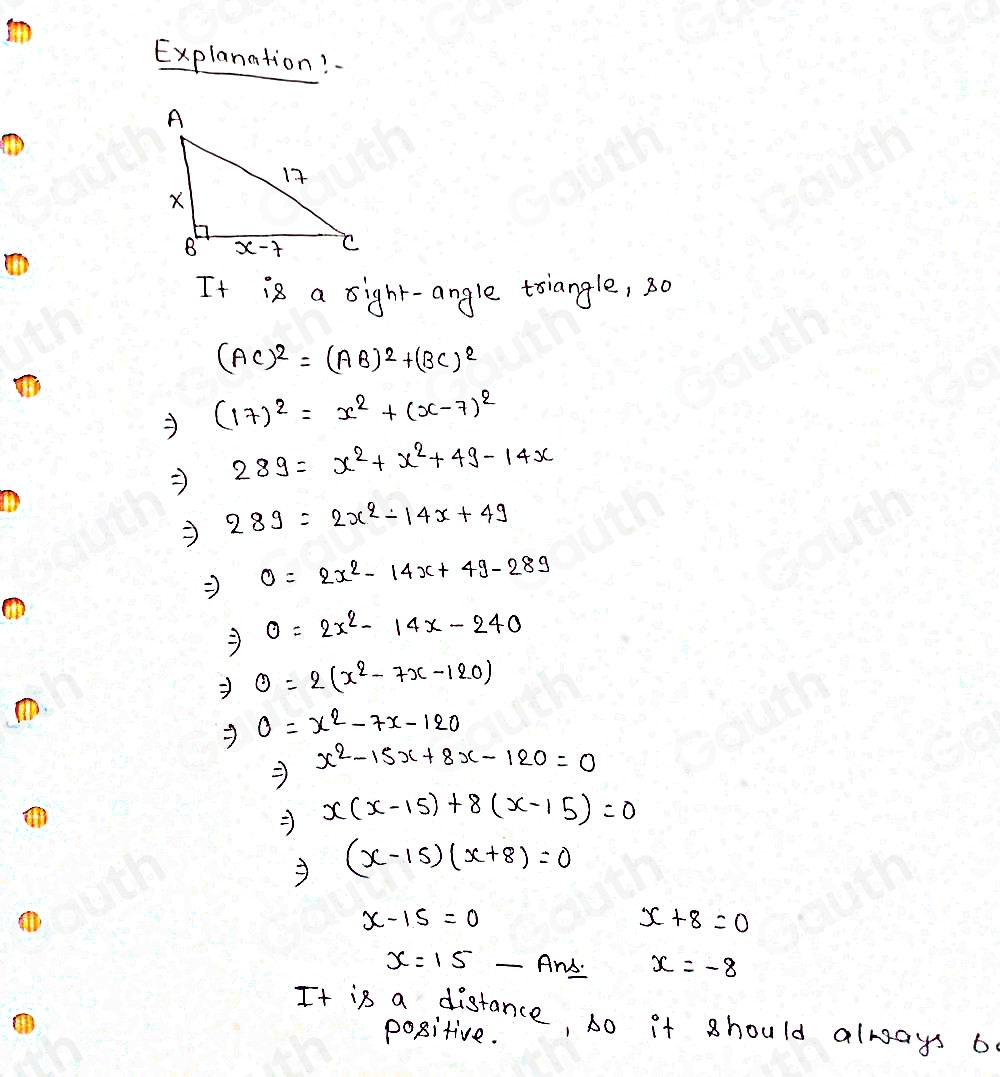 Explanation:-
A
17
x
B
x-7
C
It is a right-angle triangle, so
(AC)² = (AB)² + (BC)²
⇒ (17)² = x² + (x-7)²
⇒ 289 = x² + x² + 49 - 14x
⇒ 289 = 2x² - 14x + 49
⇒ 0 = 2x² - 14x + 49 - 289
⇒ 0 = 2x² - 14x - 240
⇒ 0 = 2(x² - 7x - 120)
⇒ 0 = x² - 7x - 120
⇒ x² - 15x + 8x - 120 = 0
⇒ x(x-15) + 8(x-15) = 0
⇒ (x-15)(x+8) = 0
x-15 = 0 x+8 = 0
x = 15 — Ans. x = -8
It is a distance, so it should always be
positive.